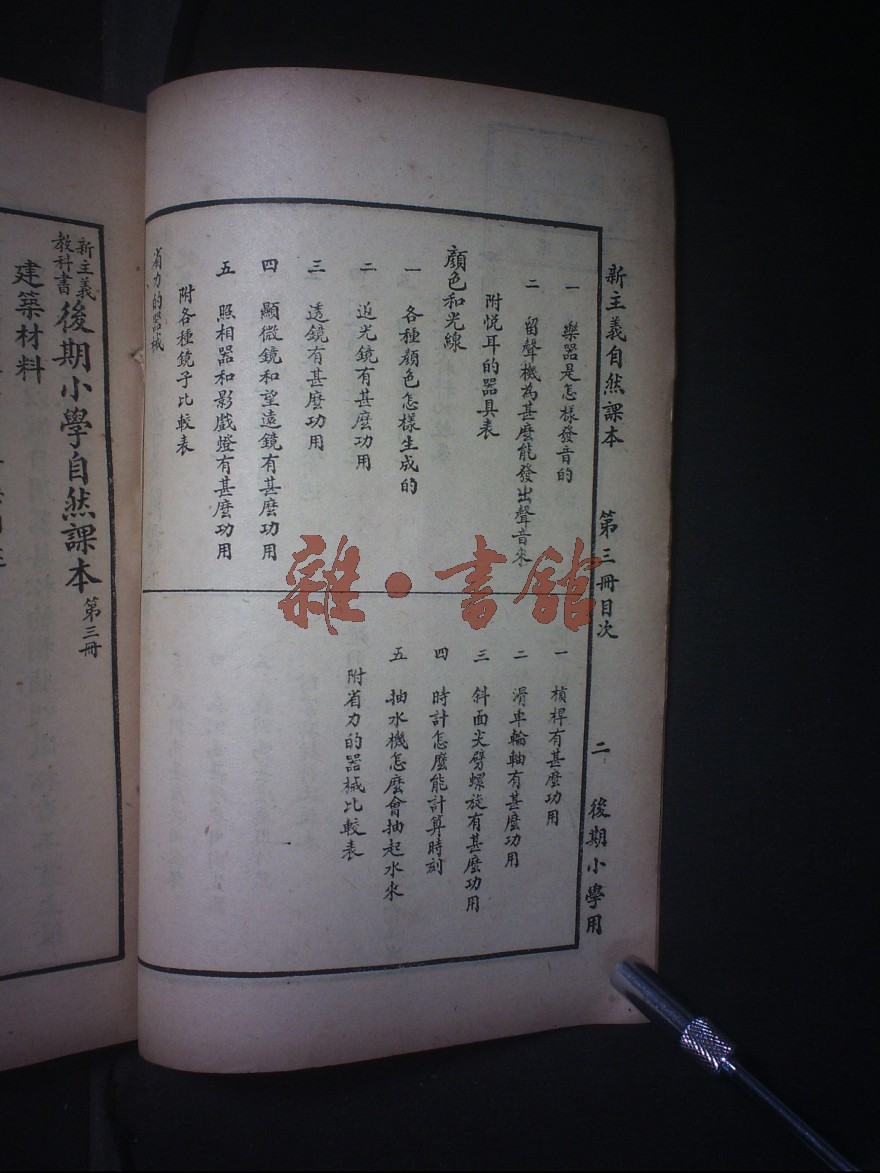 新主義自然課本 第三冊目次 二 後期小學用
一 樂器是怎樣發音的
二 留聲機為甚麼能發出聲音來
附悅耳的器具表
顏色和光線
一 各種顏色怎樣生成的
二 返光鏡有甚麼功用
三 透鏡有甚麼功用
四 顯微鏡和望遠鏡有甚麼功用
五 照相器和影戲燈有甚麼功用
附各種鏡子比較表
省力的器械
一 槓桿有甚麼功用
二 滑車輪軸有甚麼功用
三 斜面尖劈螺旋有甚麼功用
四 時計怎麼能計算時刻
五 抽水機怎麼會抽起水來
附省力的器械比較表
新主義教科書 後期小學自然課本 第三冊
建築材料
雜·書館